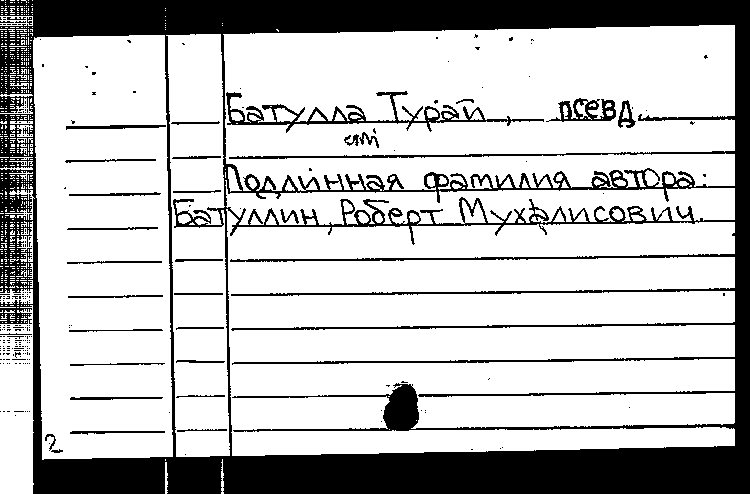 Батулла Турай, псевд.
Подлинная фамилия автора:
Батуллин, Роберт Мухлисович.
2